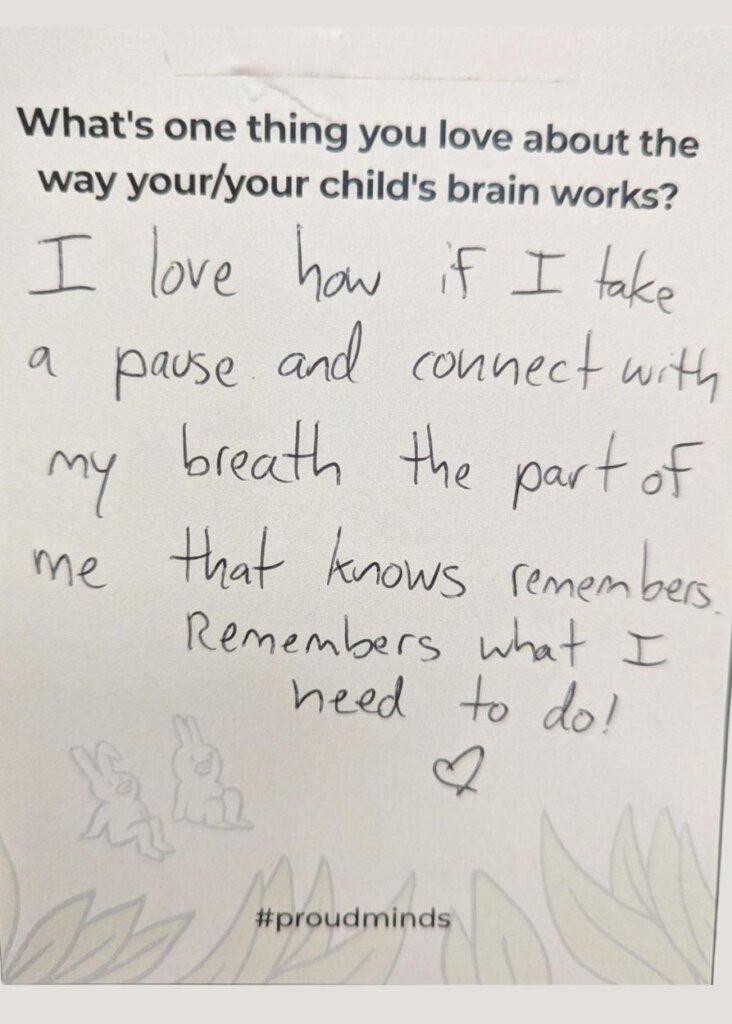 What's one thing you love about the
way your/your child's brain works?
I love how if I take
a pause and connect with
my breath the part of
me that knows remembers.
Remembers what I
need to do!
#proudminds